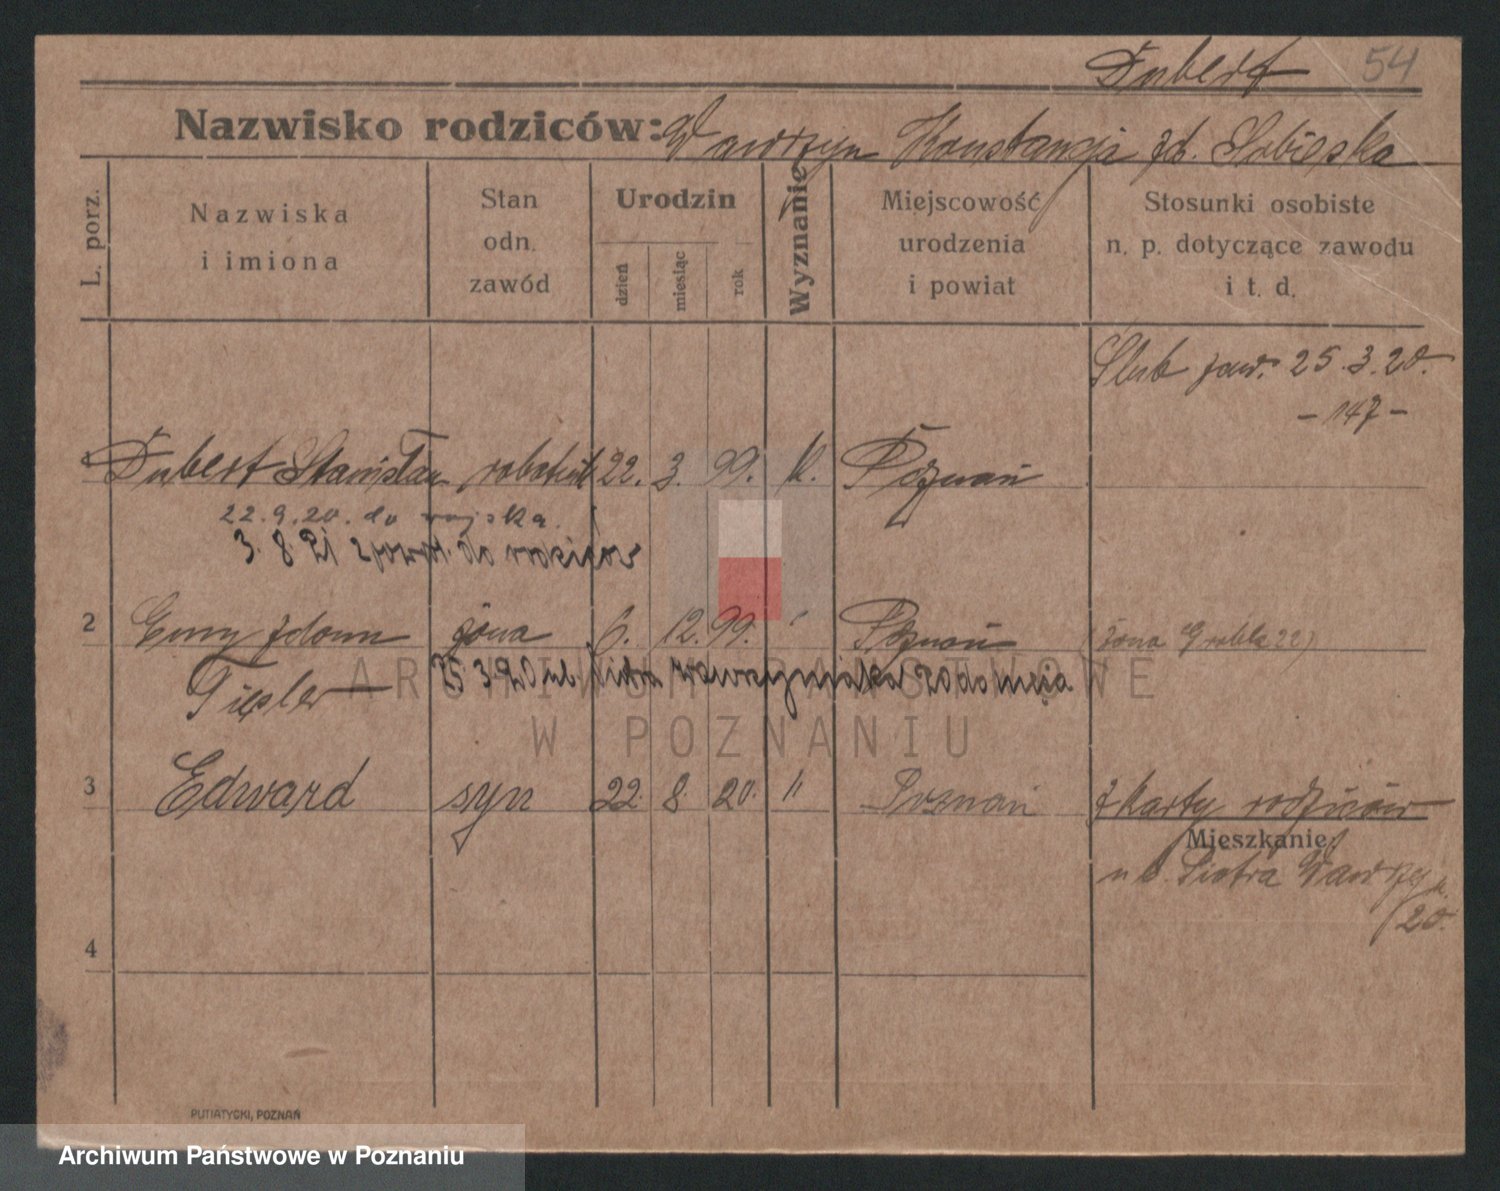 Dubert 54
Nazwisko rodziców: Wawrzyn Konstancja zd. Sobieska
L. porz.
Nazwiska
i imiona
Stan
odn.
zawód
Urodzin
dzień
miesiąc
rok
Wyznanie
Miejscowość
urodzenia
i powiat
Stosunki osobiste
n. p. dotyczące zawodu
i t. d.
Ślub zaw. 25.3.20.
- 147 -
1 Dubert Stanisław robotnik 22. 3. 99. k. Poznań
22.9.20. do wojska.
3. 8 21 z powrot. do rodziców
2 Emy z domu żona 6. 12. 99. " Poznań (żona Grobla 22)
Tiesler 25 3 20 ul. Piotra Wawrzyniaka 20
ARCHIWUM PAŃSTWOWE
W POZNANIU
3 Edward syn 22. 8. 20. " Poznań z karty rodziców
Mieszkanie
ul. Piotra Wawrzyn.
20.
4
PUTIATYCKI, POZNAŃ
Archiwum Państwowe w Poznaniu